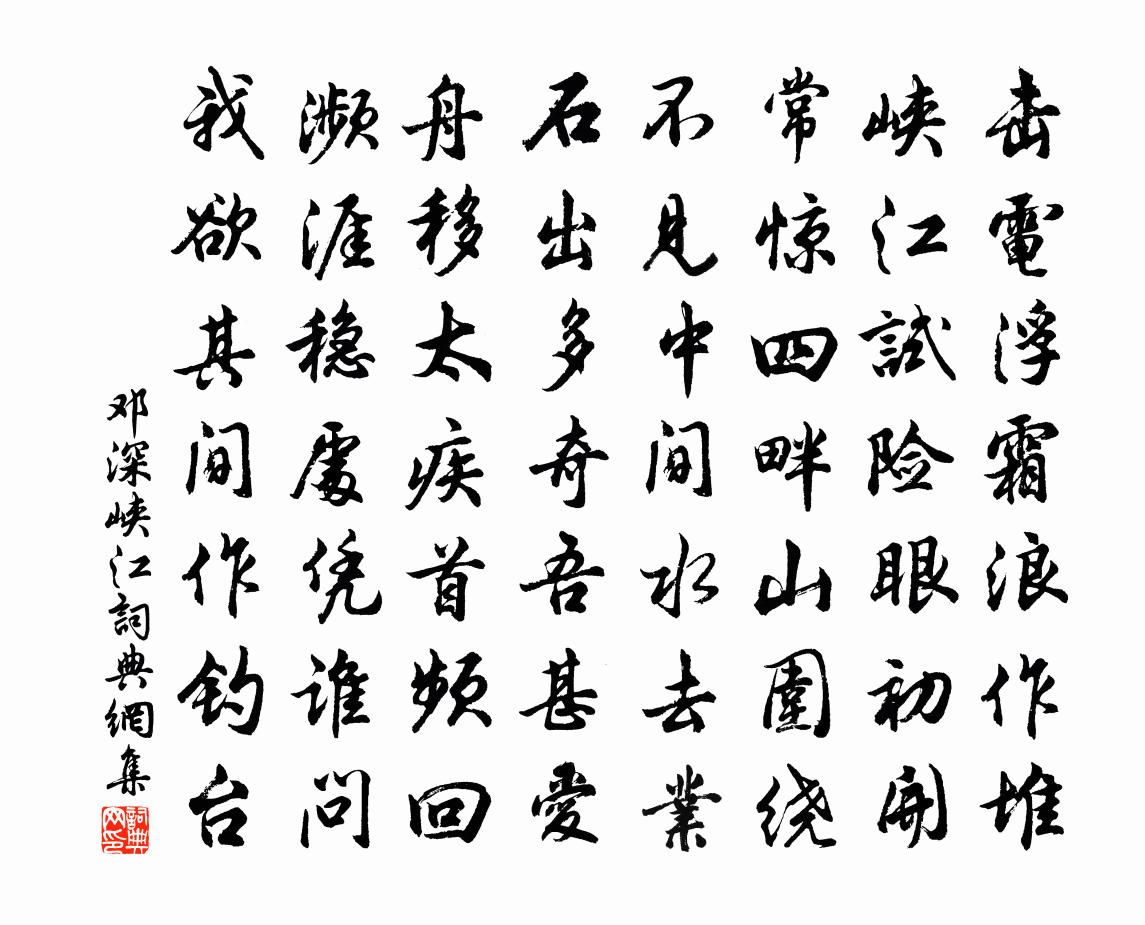 击電浮霜浪作堆
峡江試险眼初開
常惊四畔山圍绕
不見中间水去業
石出多奇吾甚愛
舟移太疾首频回
濒涯稳處凭谁问
我欲其间作钓台
邓深峡江詞典網集
詞典网印